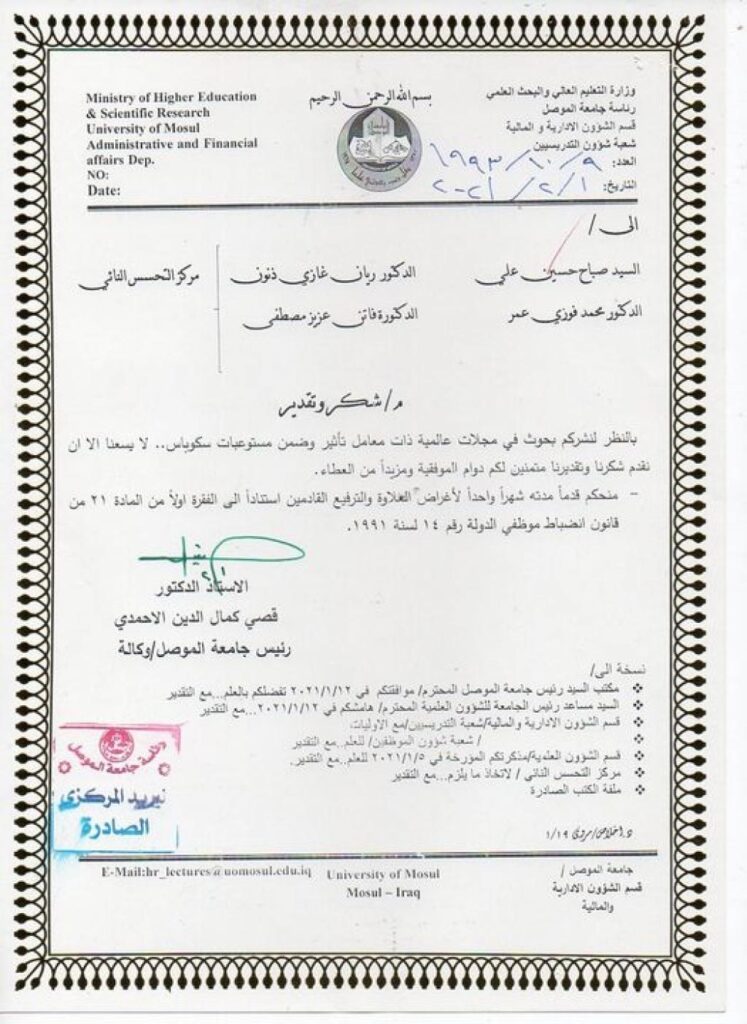 Ministry of Higher Education
& Scientific Research
University of Mosul
Administrative and Financial
affairs Dep.
NO:
Date:
بسم الله الرحمن الرحيم
وزارة التعليم العالي والبحث العلمي
رئاسة جامعة الموصل
قسم الشؤون الادارية و المالية
شعبة شؤون التدريسيين
العدد: ٩/١٠/١٩٩٣
التاريخ: ٢٠٢١/٢/١
الى /
السيد صباح حسين علي الدكتور ريان غازي ذنون مركز التحسس النائي
الدكتور محمد فوزي عمر الدكتورة فاتن عزيز مصطفى
م/ شكر وتقدير
بالنظر لنشركم بحوث في مجلات عالمية ذات معامل تأثير وضمن مستوعبات سكوباس.. لا يسعنا الا ان
نقدم شكرنا وتقديرنا متمنين لكم دوام الموفقية ومزيداً من العطاء.
- منحكم قدماً مدته شهراً واحداً لأغراض العلاوة والترفيع القادمين استناداً الى الفقرة اولاً من المادة ٢١ من
قانون انضباط موظفي الدولة رقم ١٤ لسنة ١٩٩١.
الاستاذ الدكتور
قصي كمال الدين الاحمدي
رئيس جامعة الموصل/وكالة
نسخة الى/
❖ مكتب السيد رئيس جامعة الموصل المحترم/ موافقتكم في ٢٠٢١/١/١٢ تفضلكم بالعلم...مع التقدير
❖ السيد مساعد رئيس الجامعة للشؤون العلمية المحترم/ هامشكم في ٢٠٢١/١/١٢...مع التقدير
❖ قسم الشؤون الادارية والمالية/شعبة التدريسيين/مع الاوليات.
❖ / شعبة شؤون الموظفين/ للعلم..مع التقدير
❖ قسم الشؤون العلمية/مذكرتكم المؤرخة في ٢٠٢١/١/٥ للعلم..مع التقدير.
❖ مركز التحسس النائي / لاتخاذ ما يلزم...مع التقدير
❖ ملفة الكتب الصادرة
١/١٩
رئاسة جامعة الموصل
البريد المركزي
الصادرة
E-Mail:hr_lectures@uomosul.edu.iq
University of Mosul
Mosul – Iraq
جامعة الموصل /
قسم الشؤون الادارية
والمالية